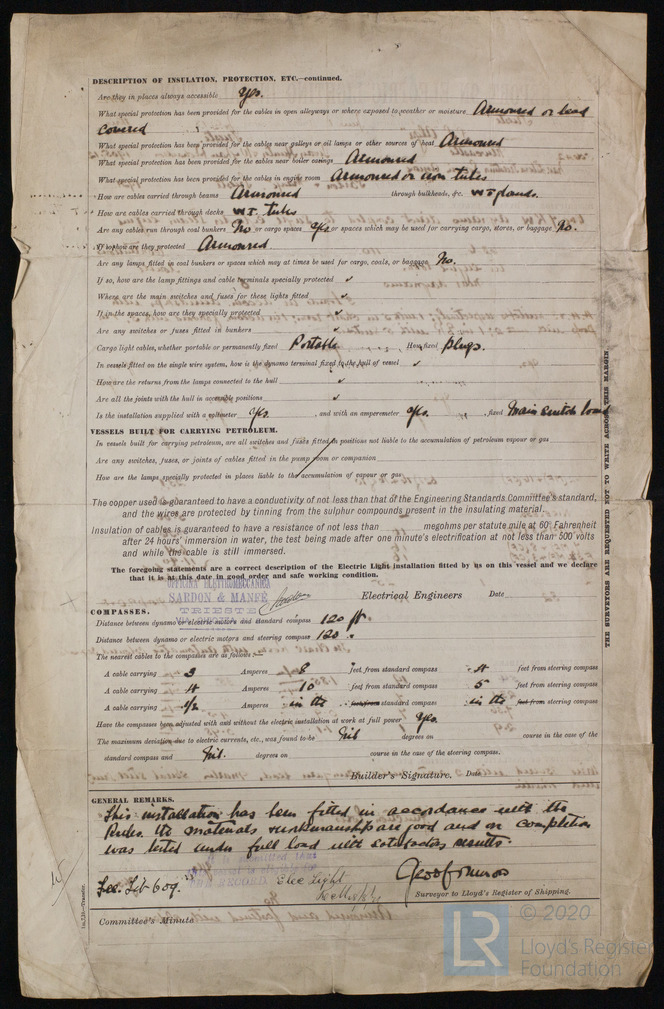 DESCRIPTION OF INSULATION, PROTECTION, ETC.—continued.
Are they in places always accessible Yes.
What special protection has been provided for the cables in open alleyways or where exposed to weather or moisture Armoured or lead
covered
What special protection has been provided for the cables near galleys or oil lamps or other sources of heat Armoured
What special protection has been provided for the cables near boiler casings Armoured
What special protection has been provided for the cables in engine room Armoured or iron tubes
How are cables carried through beams Armoured through bulkheads, &c. WT glands.
How are cables carried through decks WI. tubes
Are any cables run through coal bunkers No or cargo spaces Yes or spaces which may be used for carrying cargo, stores, or baggage No.
If so, how are they protected Armoured
Are any lamps fitted in coal bunkers or spaces which may at times be used for cargo, coals, or baggage No.
If so, how are the lamp fittings and cable terminals specially protected ✓
Where are the main switches and fuses for these lights fitted ✓
If in the spaces, how are they specially protected ✓
Are any switches or fuses fitted in bunkers ✓
Cargo light cables, whether portable or permanently fixed Portable How fixed plugs.
In vessels fitted on the single wire system, how is the dynamo terminal fixed to the hull of vessel ✓
How are the returns from the lamps connected to the hull ✓
Are all the joints with the hull in accessible positions ✓
Is the installation supplied with a voltmeter Yes. , and with an amperemeter Yes. , fixed Main switch board
VESSELS BUILT FOR CARRYING PETROLEUM.
In vessels built for carrying petroleum, are all switches and fuses fitted in positions not liable to the accumulation of petroleum vapour or gas
Are any switches, fuses, or joints of cables fitted in the pump room or companion
How are the lamps specially protected in places liable to the accumulation of vapour or gas
The copper used is guaranteed to have a conductivity of not less than that of the Engineering Standards Committee's standard,
and the wires are protected by tinning from the sulphur compounds present in the insulating material.
Insulation of cables is guaranteed to have a resistance of not less than megohms per statute mile at 60° Fahrenheit
after 24 hours' immersion in water, the test being made after one minute's electrification at not less than 500 volts
and while the cable is still immersed.
The foregoing statements are a correct description of the Electric Light installation fitted by us on this vessel and we declare
that it is at this date in good order and safe working condition.
OFFICINA ELETTROMECCANICA
SARDON & MANFÈ
TRIESTE
Electrical Engineers Date
COMPASSES.
Distance between dynamo or electric motors and standard compass 120 ft.
Distance between dynamo or electric motors and steering compass 120 "
The nearest cables to the compasses are as follows:—
A cable carrying 3 Amperes 8 feet from standard compass 4 feet from steering compass
A cable carrying 4 Amperes 10 feet from standard compass 5 feet from steering compass
A cable carrying 1/2 Amperes in the feet from standard compass in the feet from steering compass
Have the compasses been adjusted with and without the electric installation at work at full power Yes.
The maximum deviation due to electric currents, etc., was found to be Nil degrees on course in the case of the
standard compass and Nil. degrees on course in the case of the steering compass.
Builder's Signature. Date
GENERAL REMARKS.
This installation has been fitted in accordance with the
Rules. The materials & workmanship are good and on completion
was tested under full load with satisfactory results.
It is submitted that
THE RECORD Elec Light
Surveyor to Lloyd's Register of Shipping.
Committee's Minute
THE SURVEYORS ARE REQUESTED NOT TO WRITE ACROSS THIS MARGIN
LR
© 2020
Lloyd's Register
Foundation